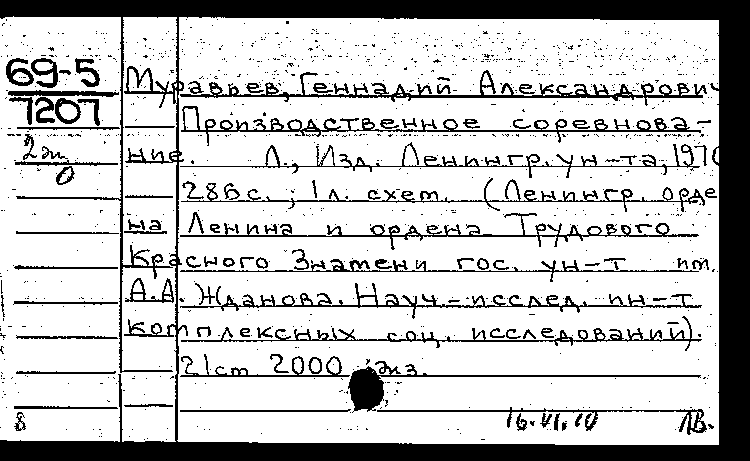 69-5
7207
2 эк
0
Муравьев, Геннадий Александрович
Производственное соревнова-
ние. Л., Изд. Ленингр. ун-та, 1970
286 с.; 1 л. схет. (Ленингр. орде
на Ленина и ордена Трудового
Красного Знамени гос. ун-т им.
А.А. Жданова. Науч.-исслед. ин-т
комплексных соц. исследований).
21 cm 2000 экз.
8
16.VI.70
ЛВ.